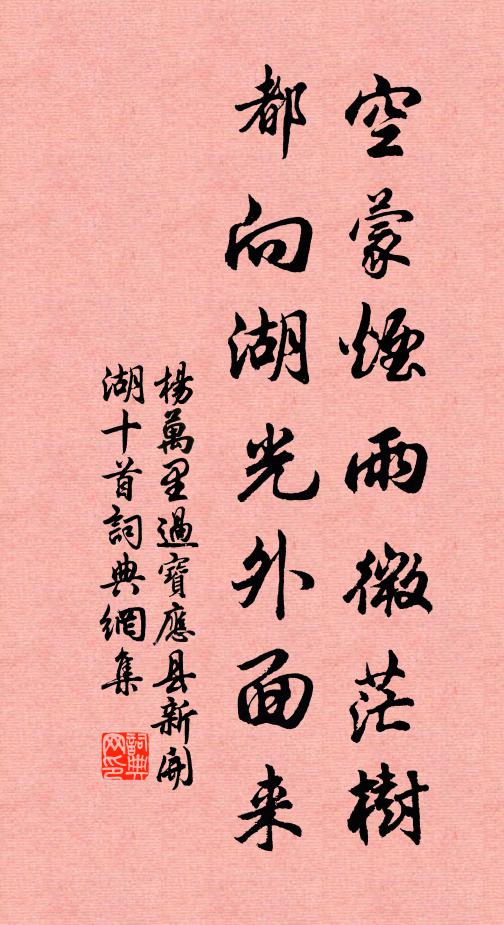 空蒙煙雨微茫樹
都向湖光外面来
楊萬里過寶應县新開
湖十首詞典網集
詞典网印